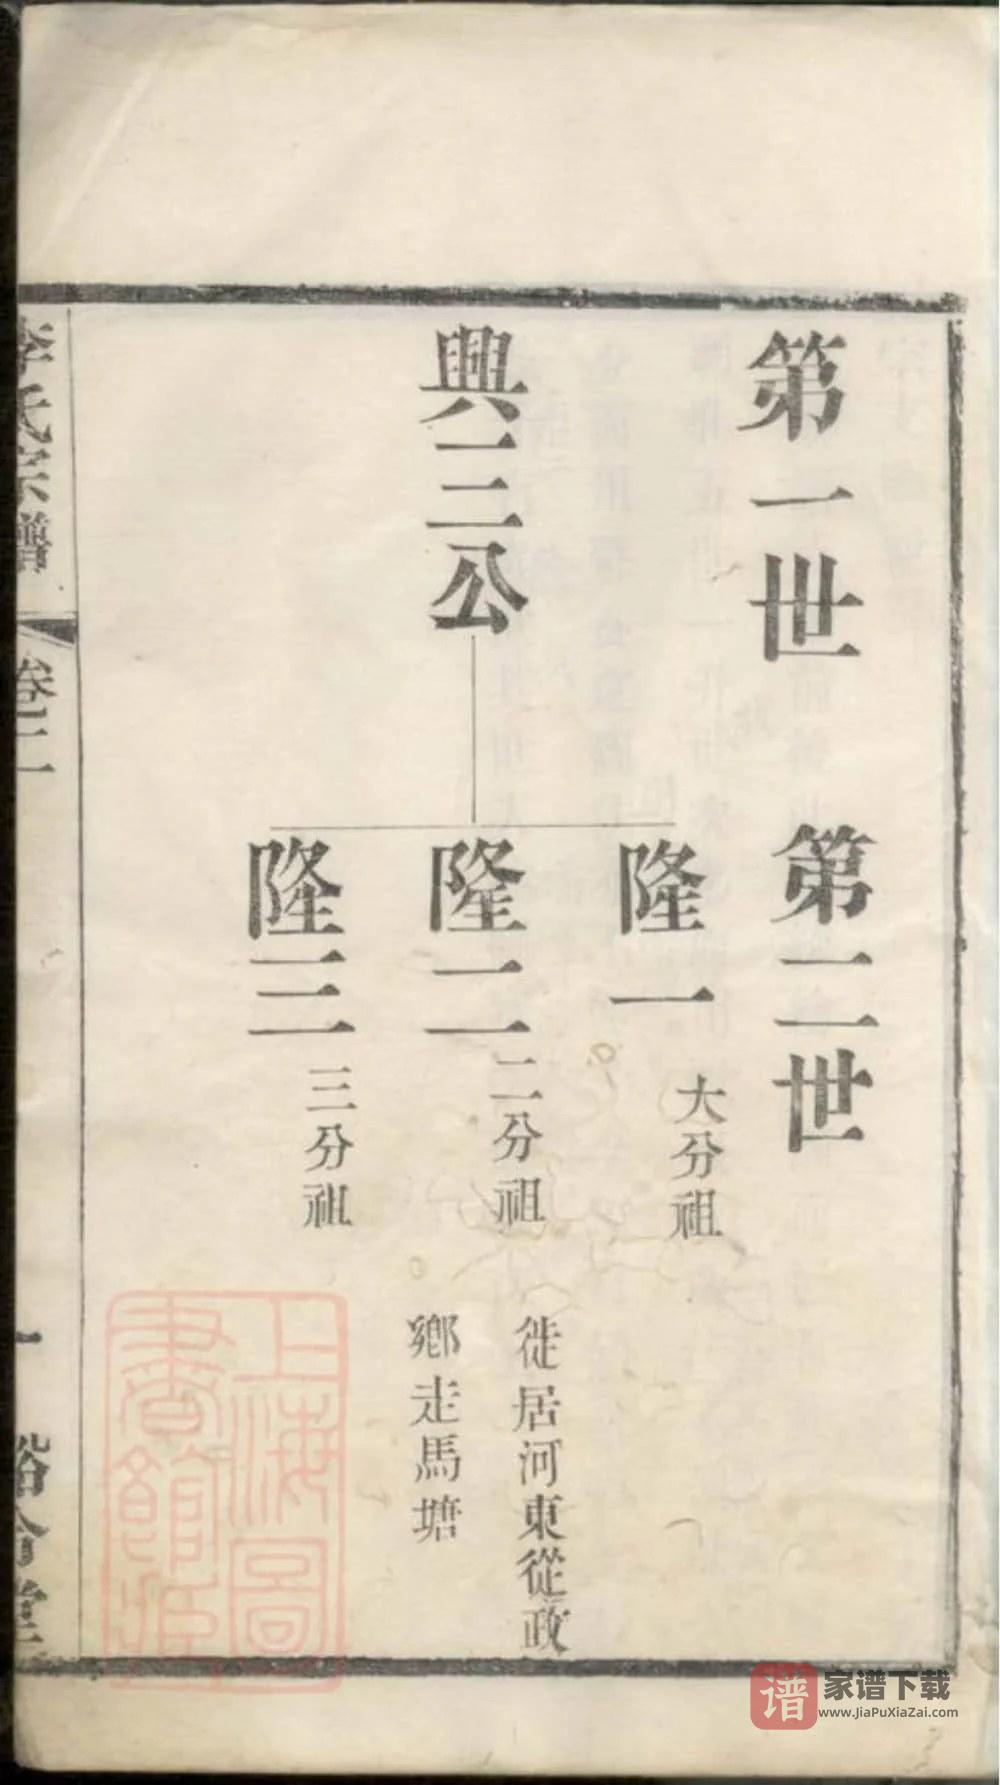 第一世 第二世
隆一 大分祖
興三公
隆二 二分祖 徙居河東從政
鄉走馬塘
隆三 三分祖
李氏宗譜 卷
一
上海圖
書館藏
谱 家谱下载
www.JiaPuXiaZai.com